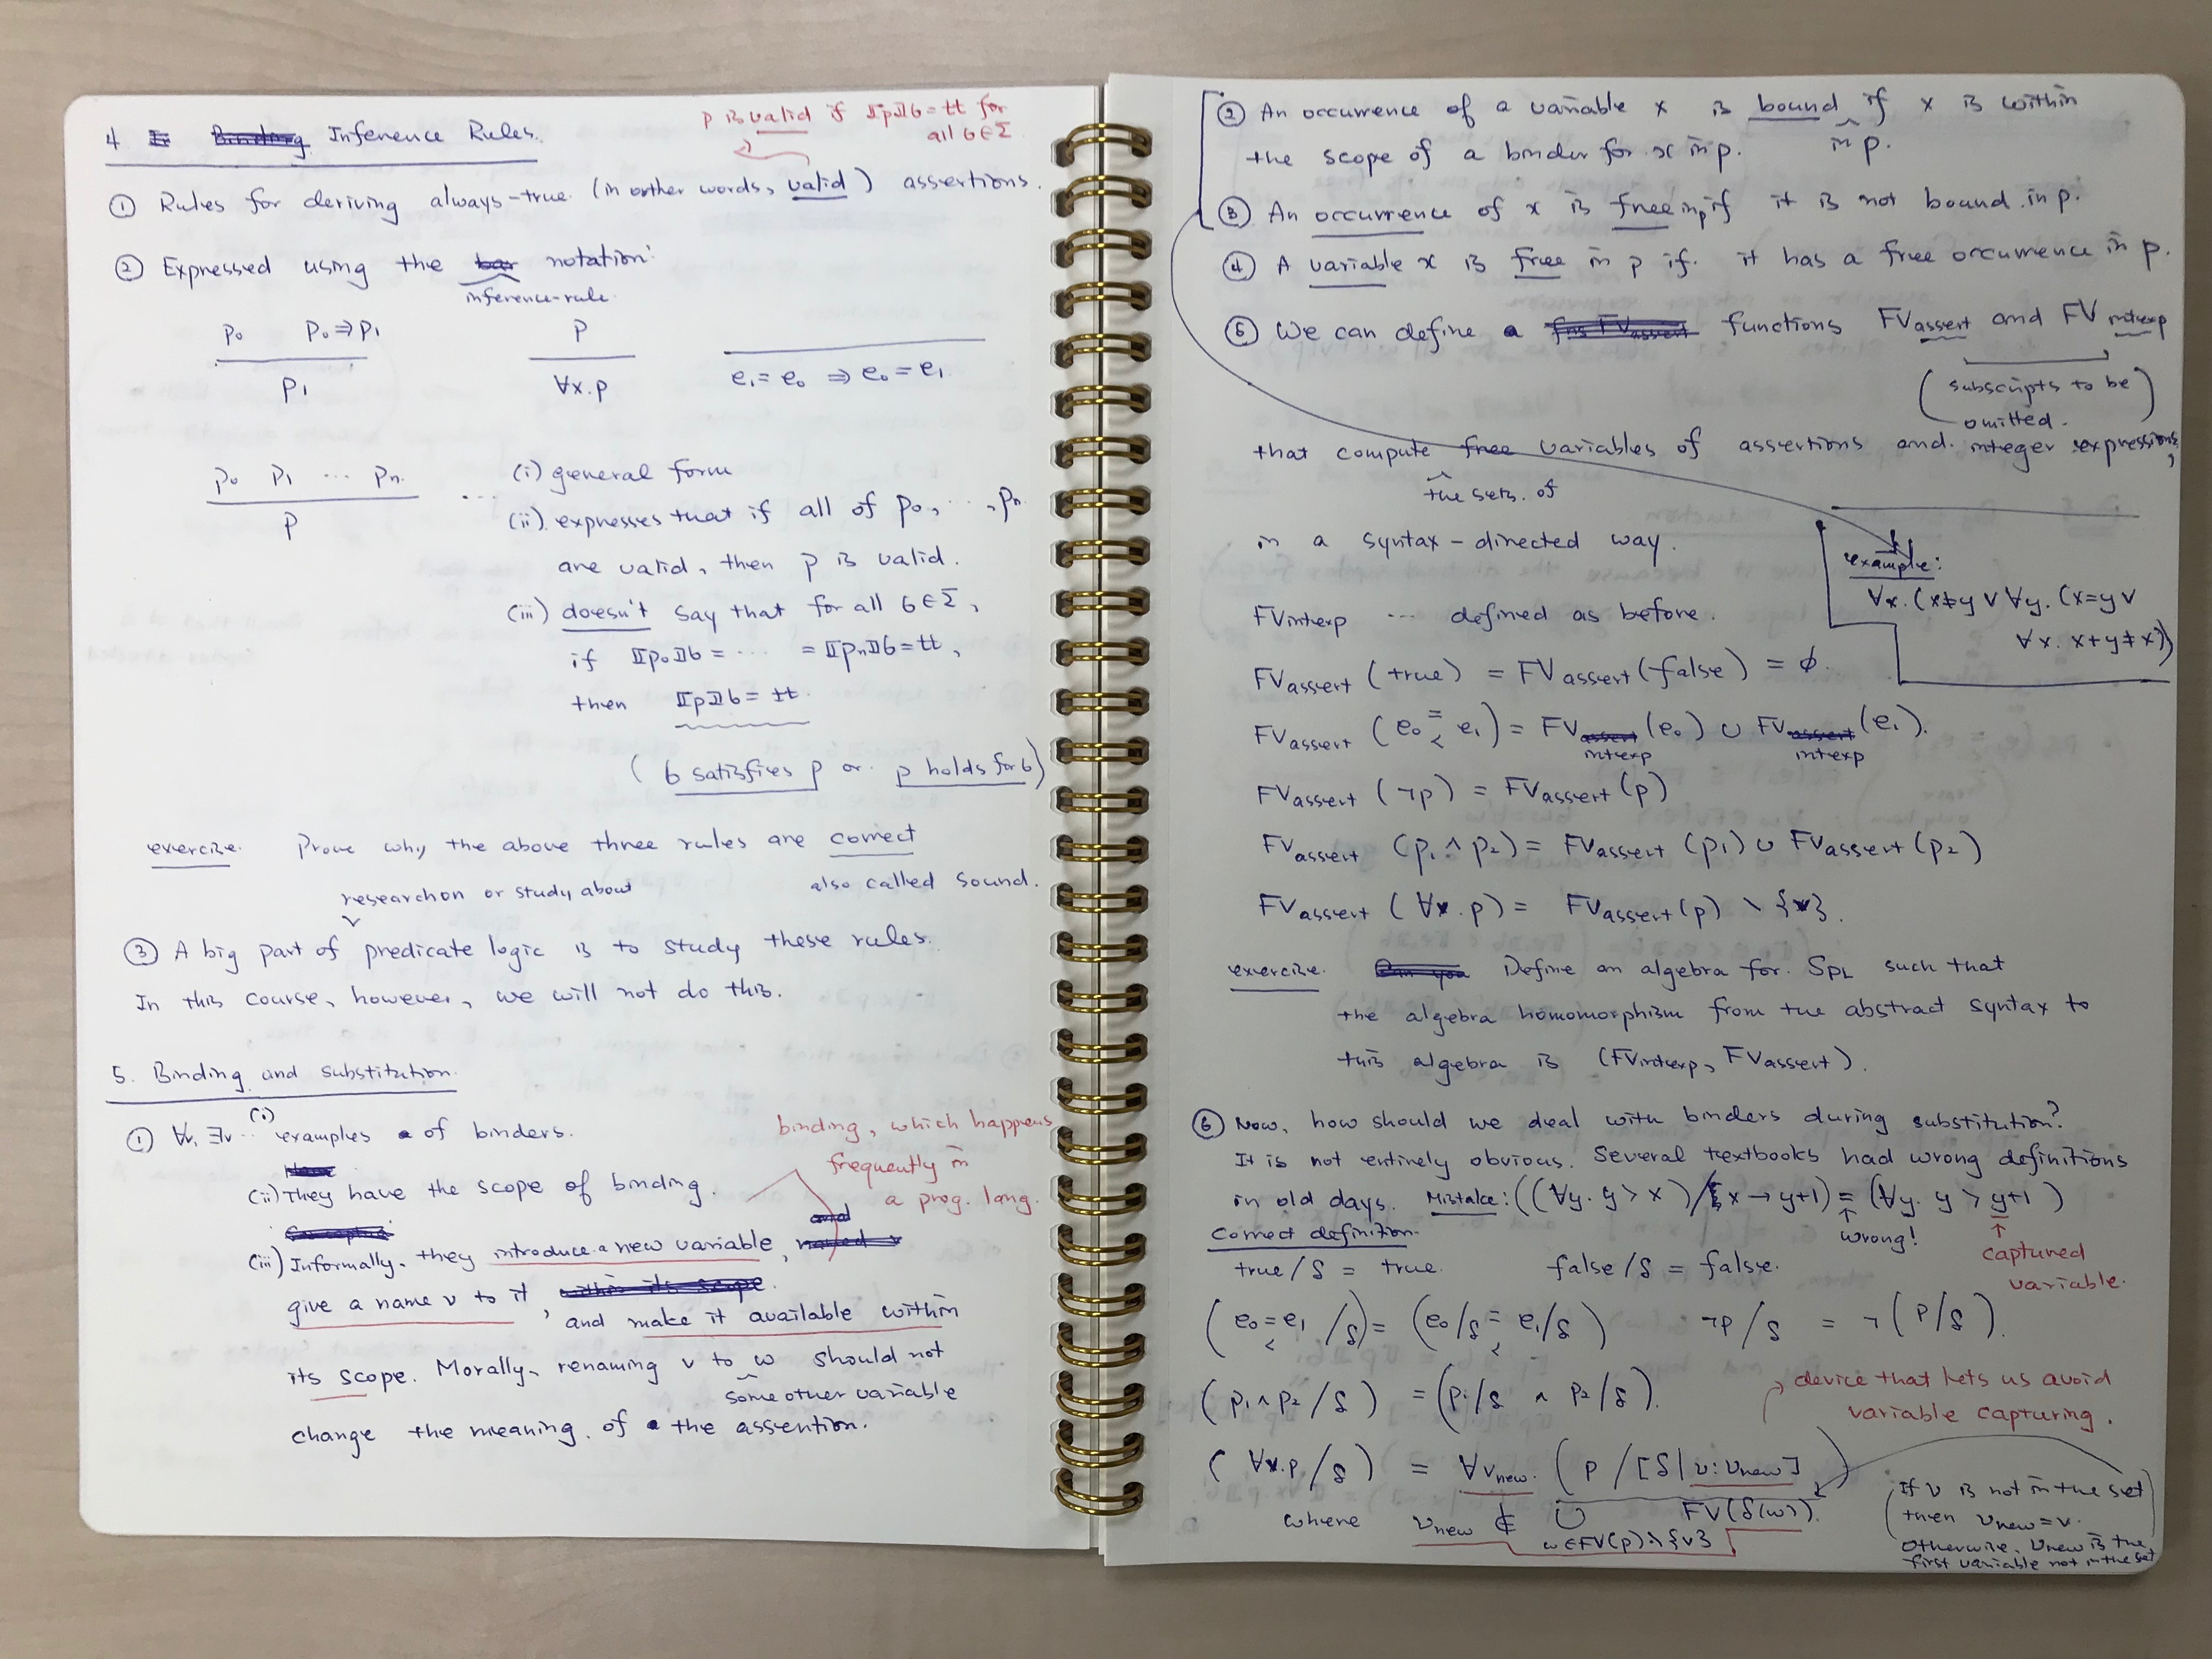 4. Inference Rules.
p is valid if ⟦p⟧σ = tt for
all σ ∈ Σ
① Rules for deriving always-true (in other words, valid) assertions.
② Expressed using the inference-rule notation:
p₀ p₀ ⇒ p₁
p₁
p
∀x.p
e₁ = e₀ ⇒ e₀ = e₁
p₀ p₁ ... pₙ
p
... (i) general form
(ii) expresses that if all of p₀, ..., pₙ
are valid, then p is valid.
(iii) doesn't say that for all σ ∈ Σ,
if ⟦p₀⟧σ = ... = ⟦pₙ⟧σ = tt,
then ⟦p⟧σ = tt.
(σ satisfies p or p holds for σ)
exercise. Prove why the above three rules are correct
also called sound.
research on or study about
③ A big part of predicate logic is to study these rules.
In this course, however, we will not do this.
5. Binding and substitution.
① ∀v, ∃v ... (i) examples of binders.
(ii) They have the scope of binding.
binding, which happens
frequently in
a prog. lang.
(iii) Informally, they introduce a new variable,
give a name v to it, and make it available within
its scope. Morally, renaming v to some other variable w should not
change the meaning of the assertion.
② An occurrence of a variable x is bound in p if x is within
the scope of a binder for x in p.
③ An occurrence of x is free in p if it is not bound in p.
④ A variable x is free in p if it has a free occurrence in p.
⑤ We can define functions FVassert and FVintexp
(subscripts to be
omitted.)
that compute the sets of free variables of assertions and integer expressions,
in a syntax-directed way.
example:
∀x. (x≠y ∨ ∀y. (x=y ∨
∀x. x+y≠x))
FVintexp ... defined as before.
FVassert (true) = FVassert (false) = ∅.
FVassert (e₀ = < e₁) = FVintexp (e₀) ∪ FVintexp (e₁).
FVassert (¬p) = FVassert (p)
FVassert (p₁ ∧ p₂) = FVassert (p₁) ∪ FVassert (p₂)
FVassert (∀v.p) = FVassert (p) \ {v}.
exercise. Define an algebra for SPL such that
the algebra homomorphism from the abstract syntax to
this algebra is (FVintexp, FVassert).
⑥ Now, how should we deal with binders during substitution?
It is not entirely obvious. Several textbooks had wrong definitions
in old days. Mistake: ((∀y. y > x) / x → y+1) = (∀y. y > y+1)
↑ wrong!
↑ captured
variable.
Correct definition.
true/δ = true. false/δ = false.
(e₀ = < e₁ /δ) = (e₀/δ = < e₁/δ) ¬p/δ = ¬(p/δ).
(p₁ ∧ p₂ /δ) = (p₁/δ ∧ p₂/δ).
device that lets us avoid
variable capturing.
(∀v.p/δ) = ∀vnew. (p / [δ | v: vnew])
where vnew ∉ ∪ w∈FV(p)\{v} FV(δ(w)).
(If v is not in the set
then vnew = v.
otherwise, vnew is the
first variable not in the set)